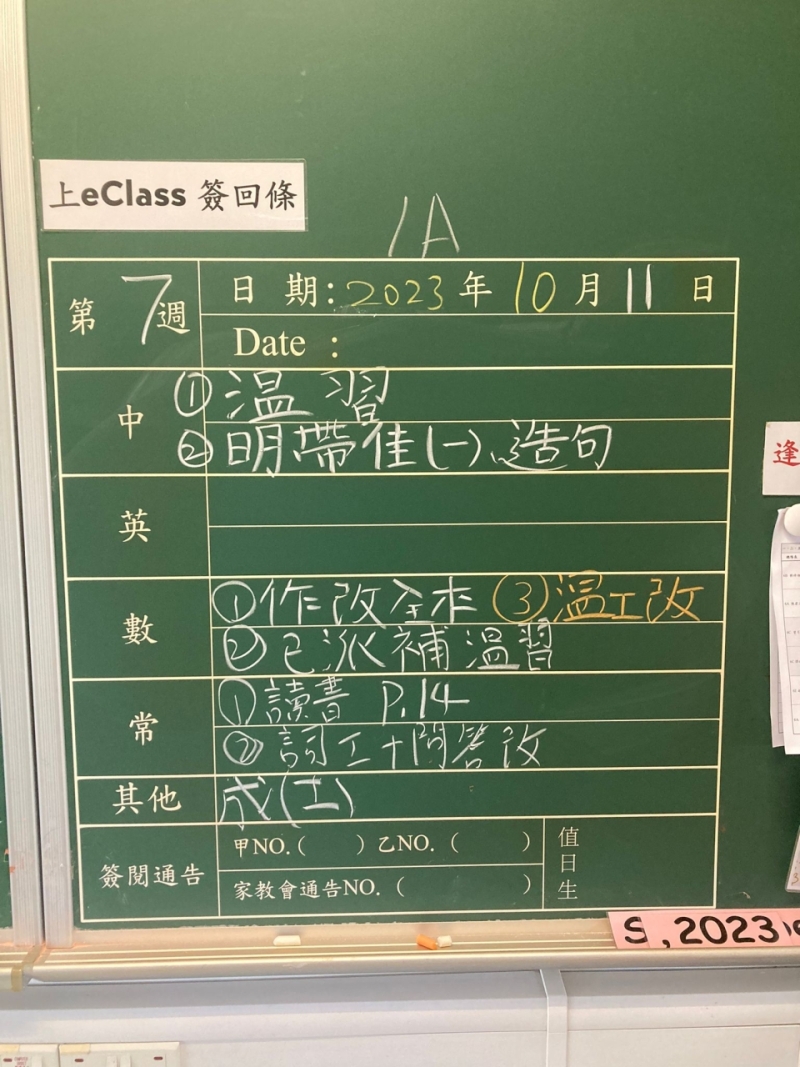 上eClass 簽回條
1A
第 7 週
日 期: 2023 年 10 月 11 日
Date :
中
①溫習
②明帶佳(一)、造句
英
數
①作改全本 ③溫工改
②已派補溫習
常
①讀書 P.14
②詞工+問答改
其他
成(土)
簽閱通告
甲NO.( ) 乙NO. ( )
家教會通告NO. ( )
值日生
逢
S , 2023